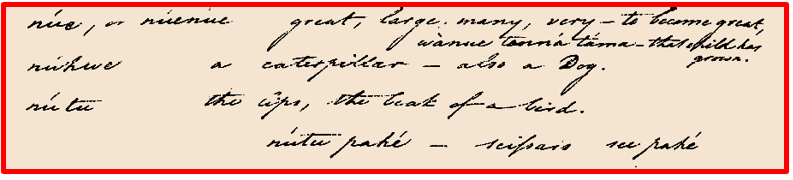 núe, or núenúe great, large. many, very – to become great,
wànue tenná táma – that child has
grown.
núhwe a caterpillar – also a Dog.
nútu the lips, the beak of a bird.
nútu pahé – scissars see pahé